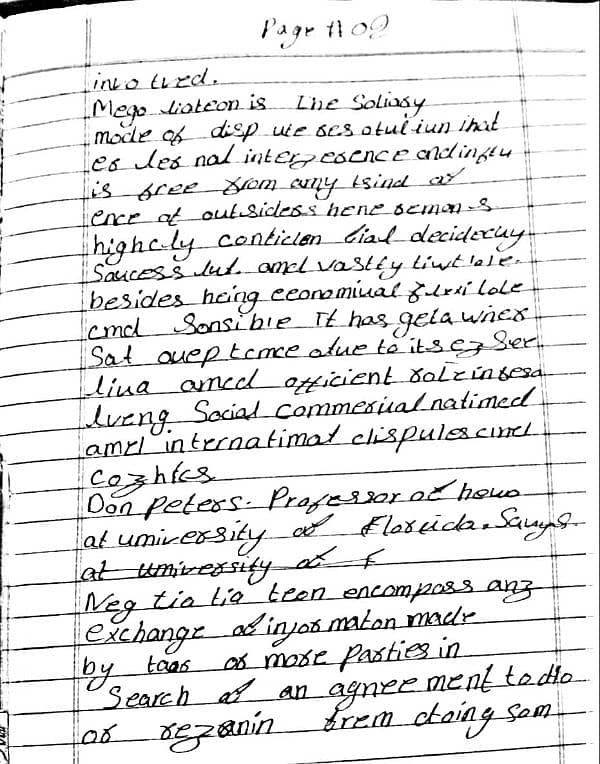 Page #109
invo lved.
Mego liateon is the Soliasy
mode of disp ute ses otutiun that
is free from amy kind of
ence of outsidess hene seman s
highcly conticlen tial decidecuy
Saucess ful. amd vastly
besides heing ceonomiual flexi lole
cmd Sonsible It has get a wides
Sat ouep tcmce due to its
tiua amcd officient role in seso
lveng. Social commerual natimed
amd internatimal dispules cmd
Don Peters. Professor of
at umiversity of Floruida. Sauys.
at umiversity of f
Neg tia tia teon encompass any
exchange of infos maton made
by taas os mose pasties in
Search of an agnee ment to do
os frem doing som